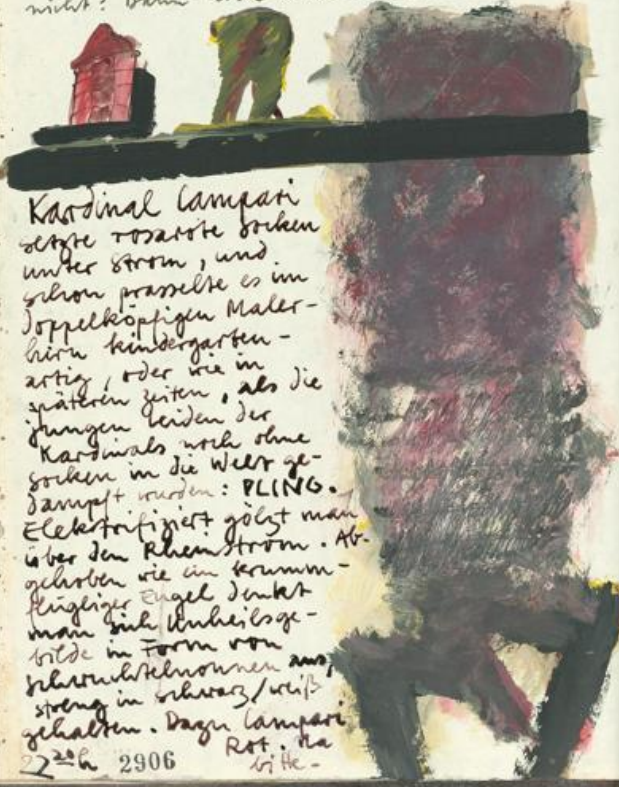 nicht? Dann
Kardinal Campari
setzte rosarote Socken
unter Strom, und
schon prasselte es im
doppelköpfigen Maler-
hirn kindergarten-
artig, oder wie in
späteren Zeiten, als die
jungen Leiden der
Kardinals noch ohne
Socken in die Welt ge-
dampft wurden: PLING.
Elektrifiziert gölzt man
über den Rheinstrom. Ab-
gehoben wie ein krumm-
flügliger Engel denkt
man sich Unheilsge-
bilde in Form von
schwuchtelnonnen aus,
streng in schwarz/weiß
gehalten. Dazu Campari
Rot. Na
22 20 h 2906 bitte-